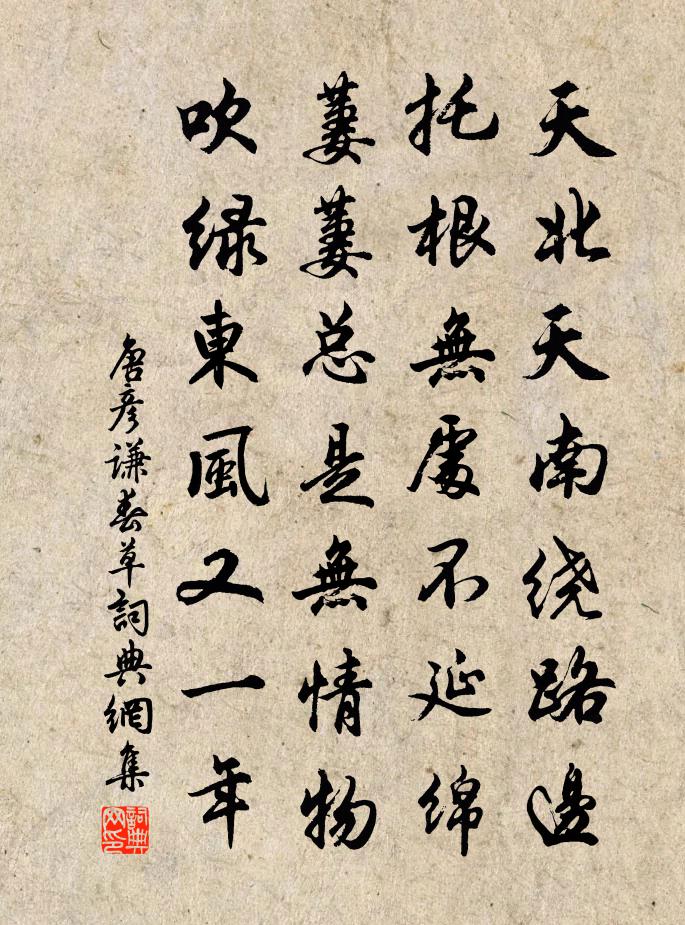 天北天南绕路邊
托根無處不延綿
萋萋总是無情物
吹绿東風又一年
唐彦谦春草詞典網集
詞典网印